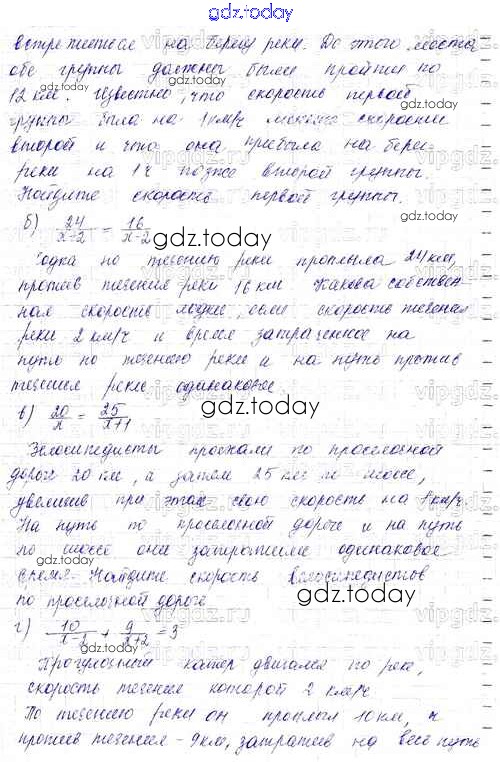 gdz.today
встретиться на берегу реки. До этого места
обе группы должны были пройти по
12 км. Известно, что скорость первой
группы была на 1 км/ч меньше скорости
второй и что она прибыла на берег
реки на 1 ч позже второй группы.
Найдите скорость первой группы.
б) 24/(x+2) = 16/(x-2)
Лодка по течению реки проплыла 24 км,
против течения реки 16 км. Какова собствен-
ная скорость лодки, если скорость течения
реки 2 км/ч и время затраченное на
путь по течению реки и на путь против
течения реки одинаковое.
в) 20/x = 25/(x+1)
Велосипедисты проехали по проселочной
дороге 20 км, а затем 25 км по шоссе,
увеличив при этом свою скорость на 1 км/ч.
На путь по проселочной дороге и на путь
по шоссе они затратили одинаковое
время. Найдите скорость велосипедистов
по проселочной дороге
г) 10/(x-2) + 9/(x+2) = 3
Прогулочный катер двигался по реке,
скорость течения которой 2 км/ч
По течению реки он проплыл 10 км, и
против течения - 9 км, затратив на весь путь